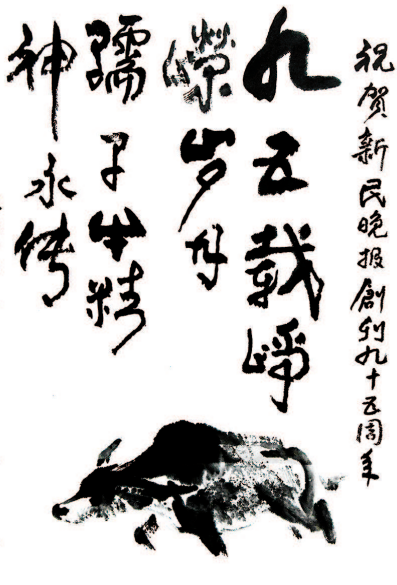 祝賀新民晚报創刊九十五周年
九五载峥
嵘岁月
孺子牛精
神永传